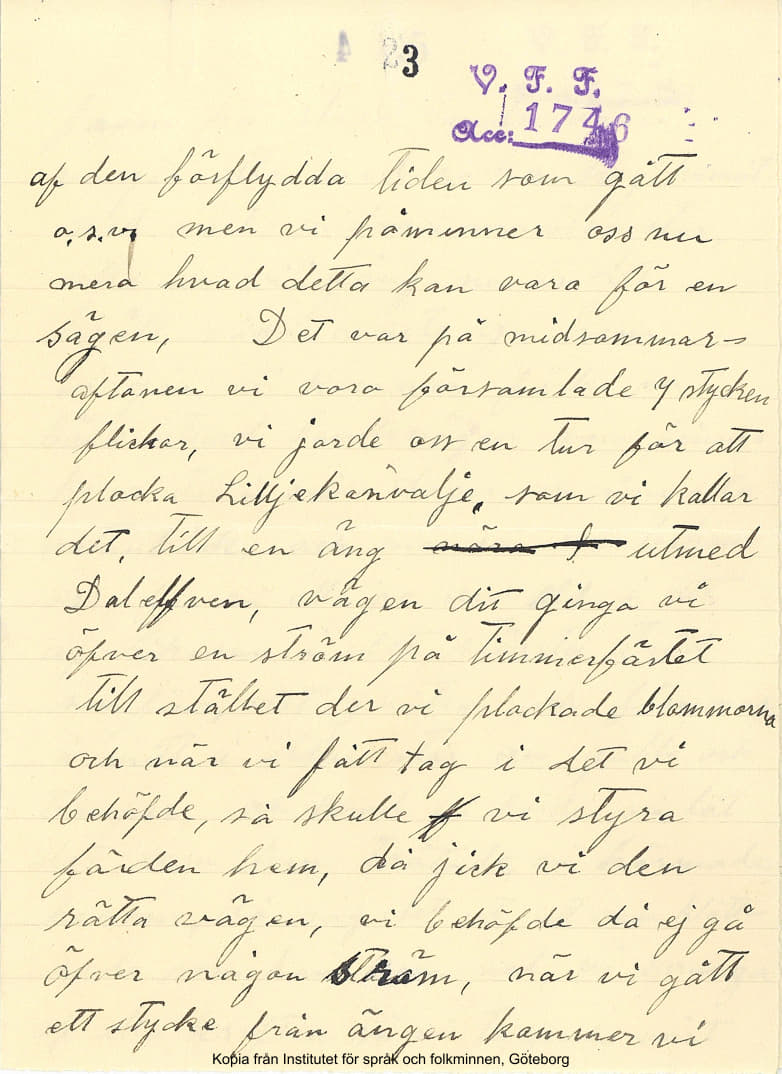 3
V. F. F.
Acc: 1746
af den förflydda tiden som gått
o.s.v. men vi påminner oss nu
mera hvad detta kan vara för en
sägen, Det var på midsommar-
aftonen vi voro församlade 7 stycken
flickor, vi jorde oss en tur för att
plocka Liljekonvalje, som vi kallar
det, till en äng utmed
Dalelfven, vägen dit gingo vi
öfver en ström på timmerfästet
till stället der vi plockade blommorna
och när vi fått tag i det vi
behöfde, så skulle vi styra
färden hem, då jick vi den
rätta vägen, vi behöfde då ej gå
öfver någon ström, när vi gått
ett stycke från ängen kommer vi
Kopia från Institutet för språk och folkminnen, Göteborg